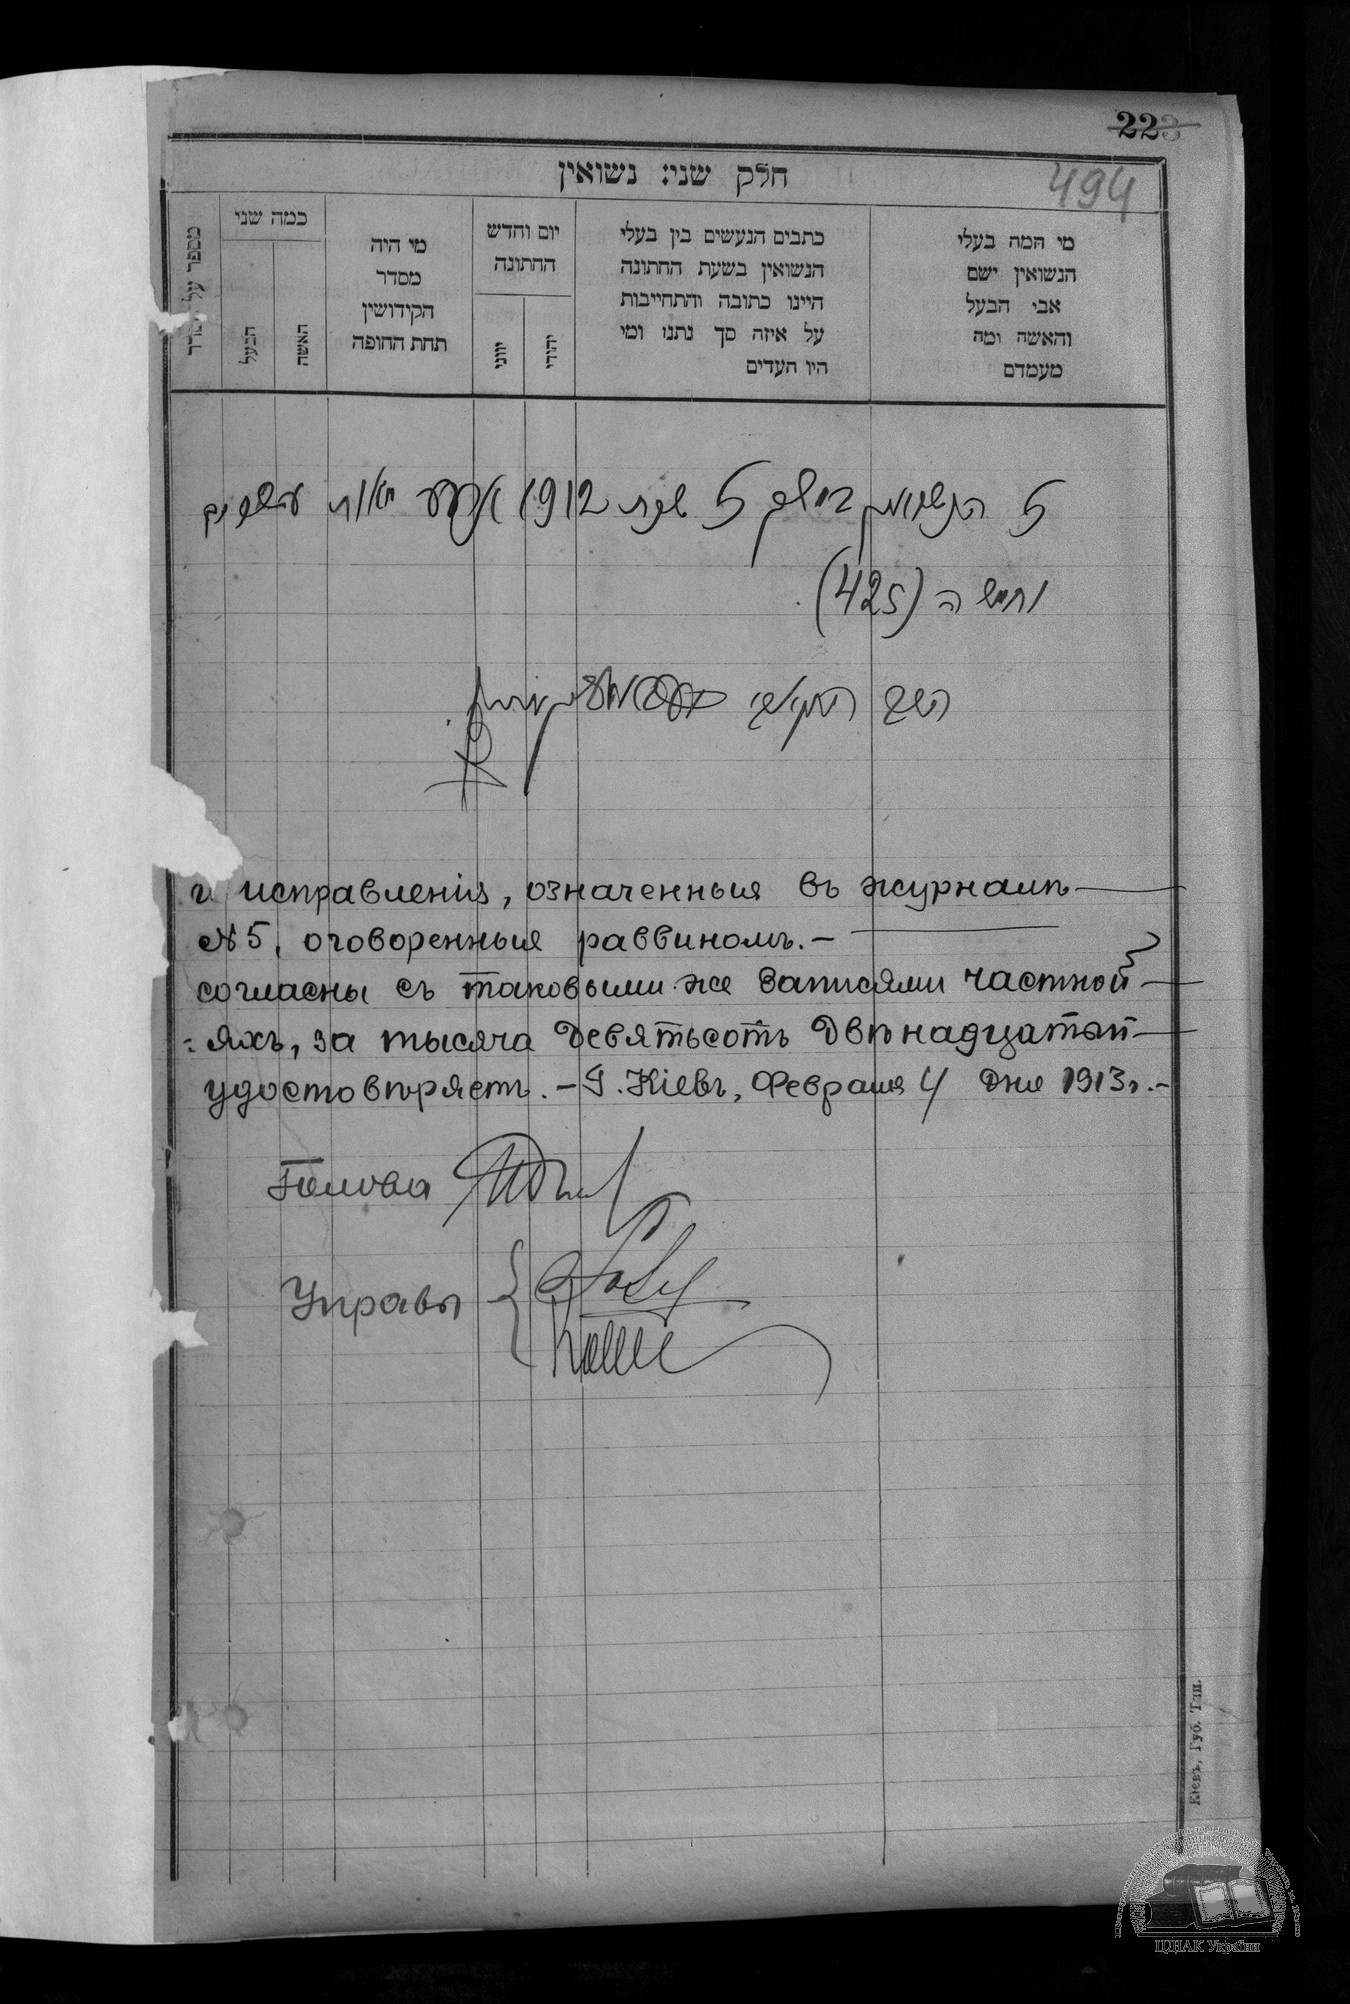 223
494
חלק שני: נשואין
מי המה בעלי
הנשואין ישם
אבי הבעל
והאשה ומה
מעמדם
כתבים הנעשים בין בעלי
הנשואין בשעת החתונה
היינו כתובה והתחייבות
על איזה סך נתנו ומי
היו העדים
יום וחדש
החתונה
יהודי
יווני
מי היה
מסדר
הקידושין
תחת החופה
כמה שני
האשה
הבעל
מספר על
שנת 1912 ארבע מאות ועשרים
וחמשה (425).
הרב
исправленія, означенныя въ журналѣ
№ 5, оговоренныя раввиномъ. —
согласны съ таковыми же записями частной
:яхъ, за тысяча девятьсотъ двѣнадцатый
удостовѣряетъ. — Г. Кіевъ, Февраля 4 дня 1913 г. —
Голова
Управы
Кіевъ, Губ. Тип.
ЦДІАК України